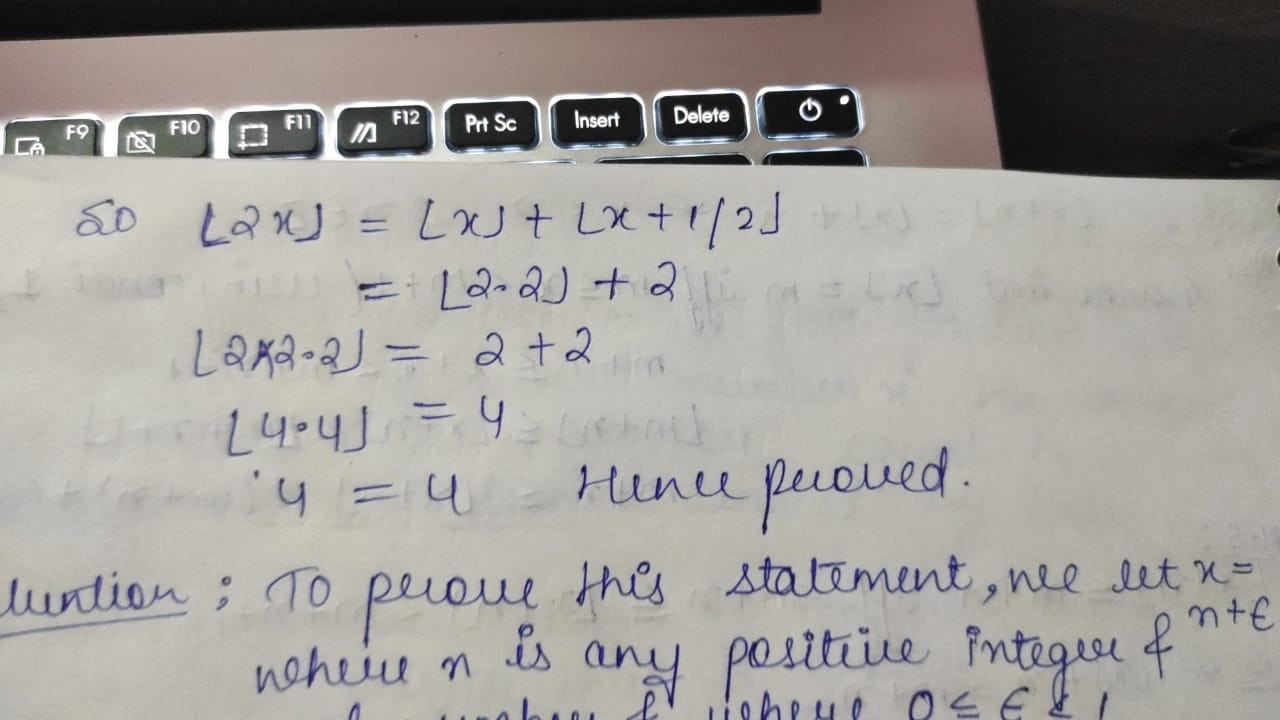 F9 F10 F11 F12 Prt Sc Insert Delete
So ⌊2x⌋ = ⌊x⌋ + ⌊x + 1/2⌋
= ⌊2.2⌋ + 2
⌊2×2.2⌋ = 2 + 2
⌊4.4⌋ = 4
4 = 4 Hence proved.
: To prove this statement, we let x =
n+ϵ
where n is any positive integer &
0 ≤ ϵ < 1